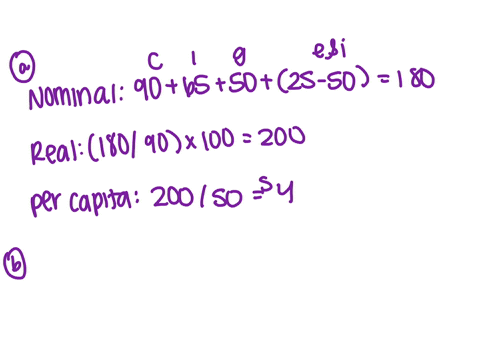 ⓐ C I g e&i
Nominal: 90+65+50+(25-50)=180
Real:(180/90)x100=200
per capita: 200/50=$4
ⓑ